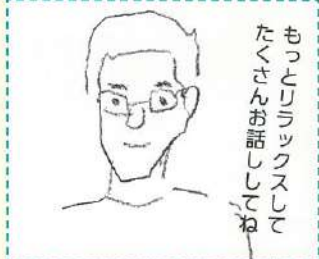 もっとリラックスして
たくさんお話ししてね